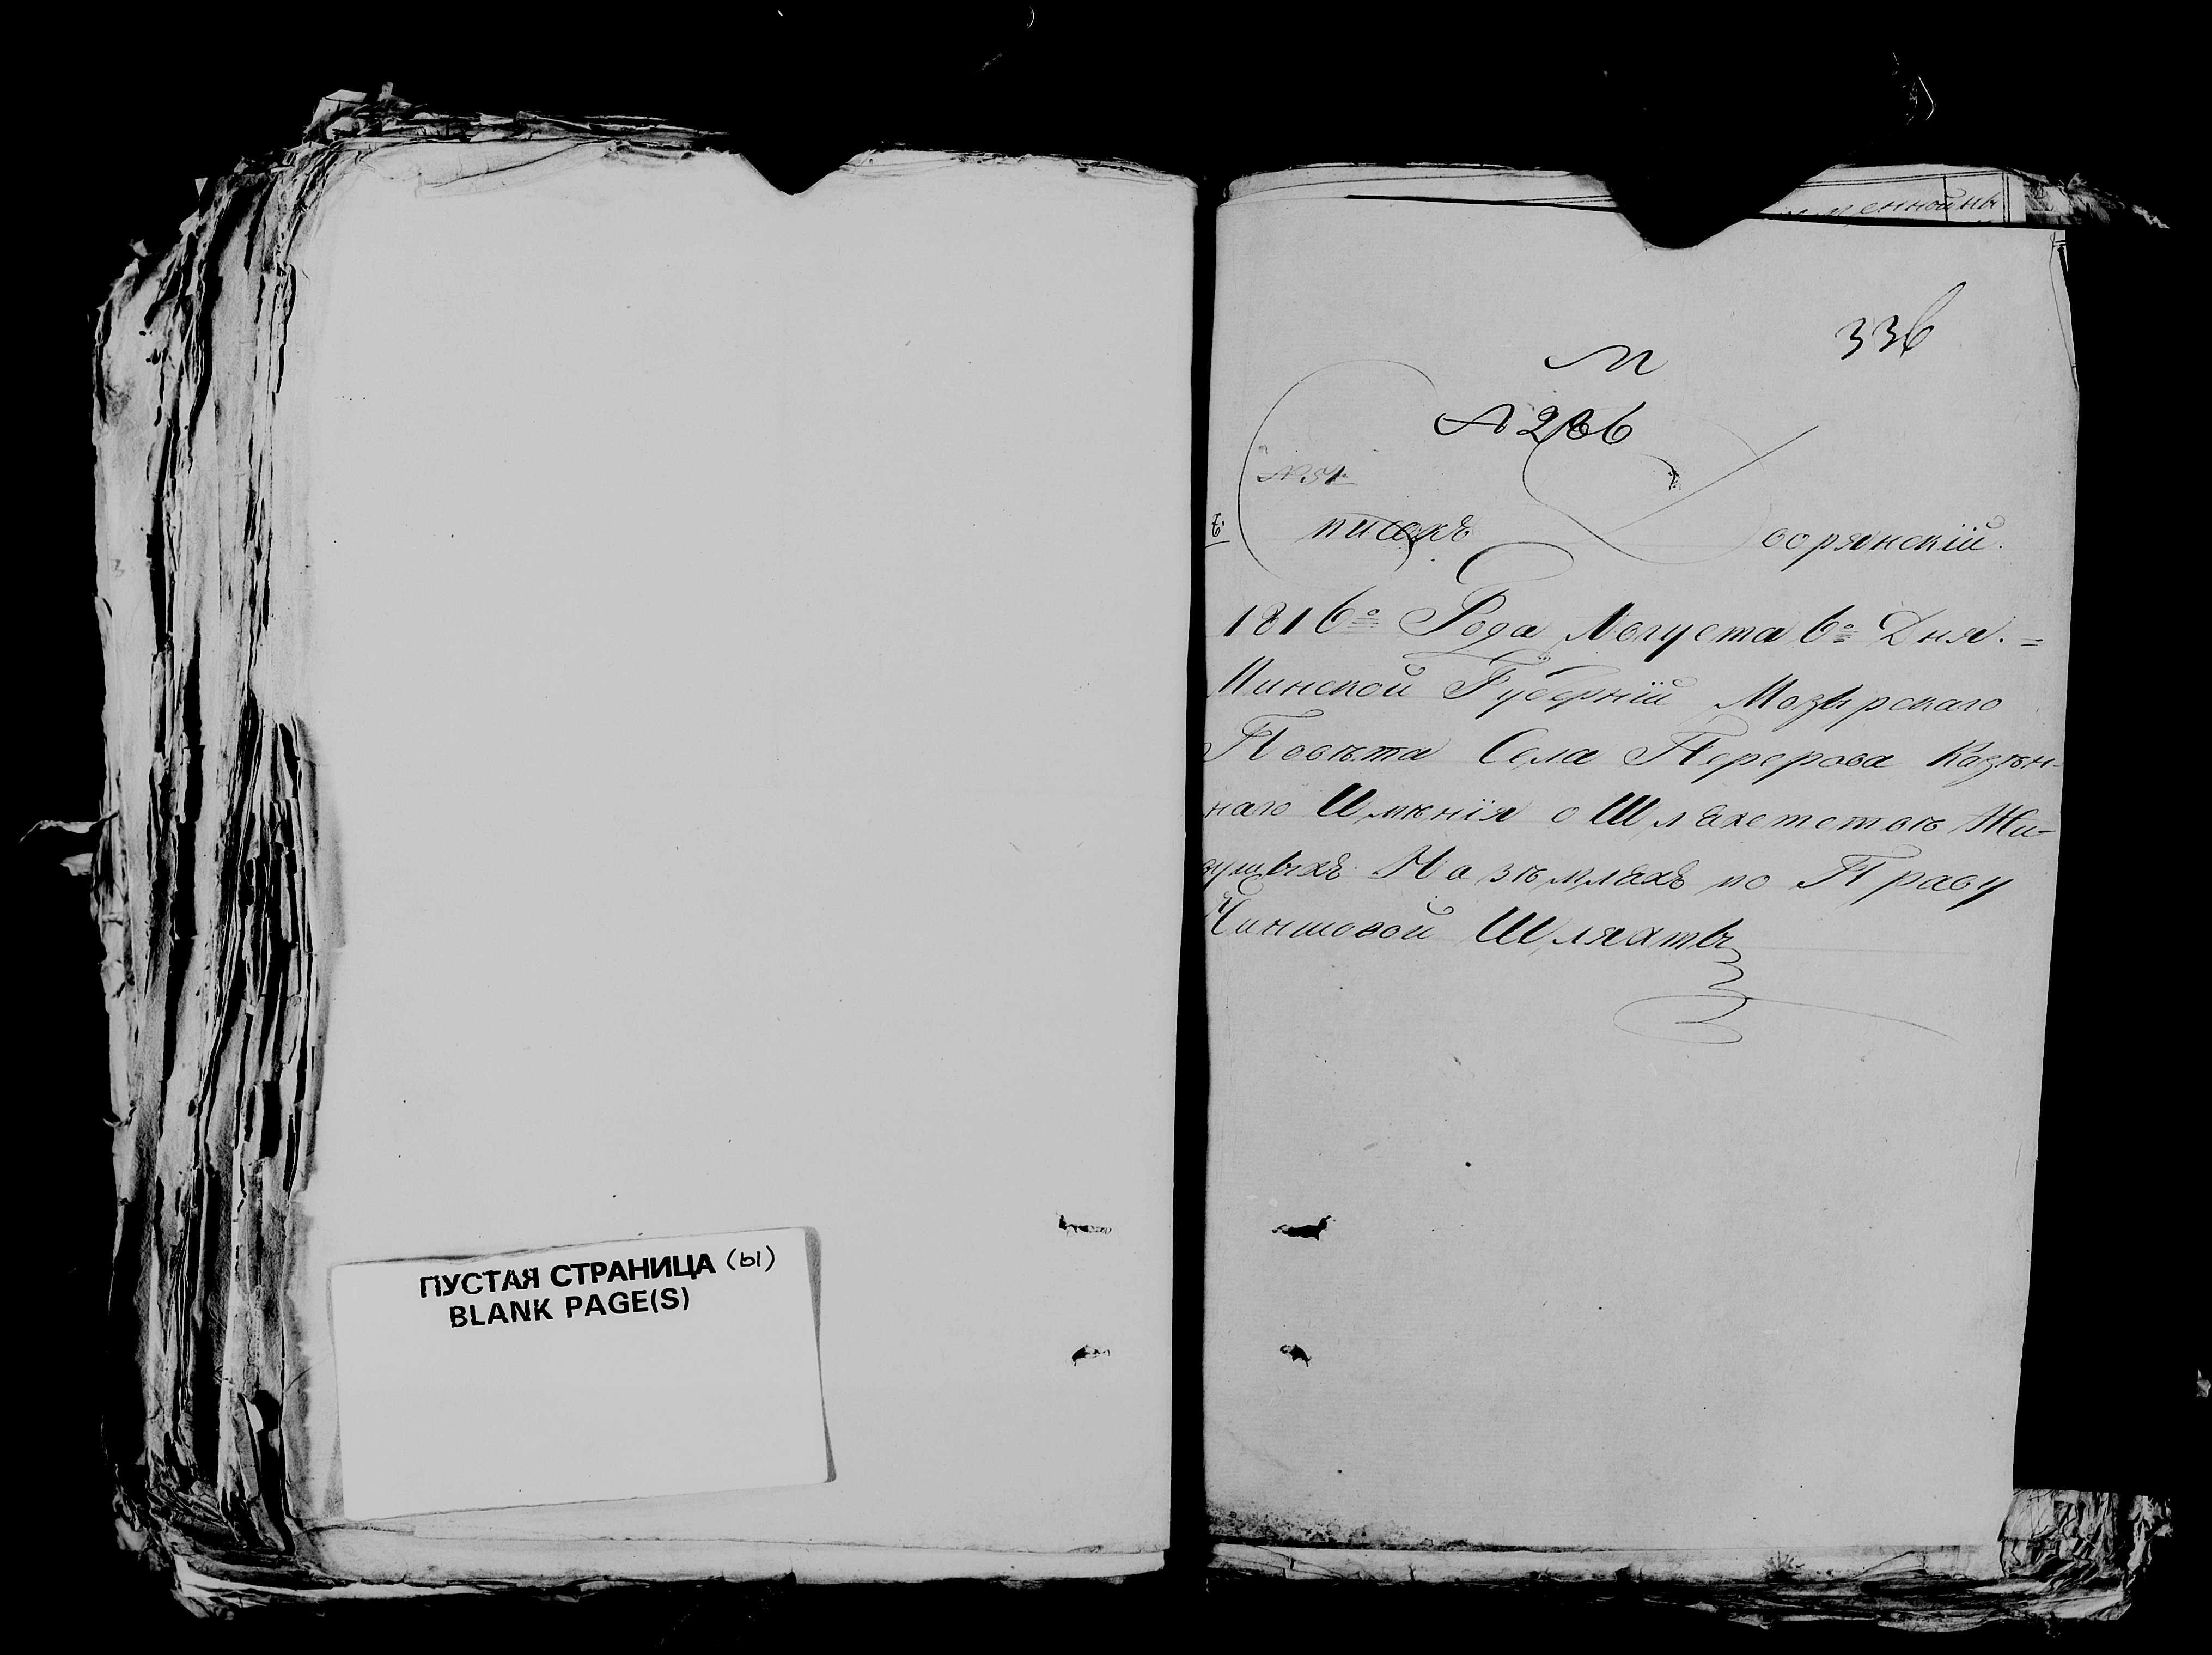 ПУСТАЯ СТРАНИЦА (ы)
BLANK PAGE(S)
336
М
№ 51
Списокъ Дворянскій.
1816го Года Августа 6го Дня.
Минской Губерніи Мозырскаго
Повѣта Села Перерова Казѣн-
наго Имѣнія о Шляхетствѣ Жи-
вущыхъ На зѣмляхъ по Праву
Чиншовой Шляхты